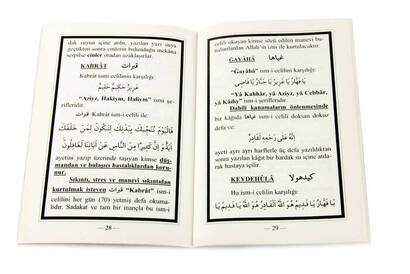 dak suyun içine atılır, yazılan yazı suya
geçtikten sonra cinlerin bulunduğu mekâna
serpilse cinler otadan uzaklaşırlar.
KABRÂT قبرات
Kabrât ismi celilinin karşılığı:
عَزِيزٌ حَكِيمٌ حَلِيمٌ
"Azîyz, Hakîym, Halîym" ismi şe-
rifleridir.
Kabrât ism-i celili ile:
فَالْيَوْمَ نُنَجِّيكَ بِبَدَنِكَ لِتَكُونَ لِمَنْ خَلْفَكَ
آيَةً وَإِنَّ كَثِيرًا مِنَ النَّاسِ عَنْ آيَاتِنَا لَغَافِلُونَ
ayetini yazıp üzerinde taşıyan kimse düş-
mandan ve bulaşıcı hastalıklardan koru-
nur.
Sıkıntı, stres ve manevi sıkıntıdan
kurtulmak isteyen قبرات "Kabrât" ism-i
celilini her gün (70) yetmiş defa okuma-
lıdır. Sadakat ve tam bir inançla bu ism-i
— 28 —
celili okuyan kimse sözü edilen manevi bu-
nalımlardan Allah'ın izni ile kurtulacaktır.
GAYÂHÂ غياها
"Gayâhâ" ism-i celilin karşılığı:
"Yâ Kahhâr, yâ Azîyz, yâ Cebbâr,
yâ Kâdıy" ism-i şerifleridir.
Dahili kanamaların önlenmesinde
bir kâğıda ism-i celili doksan dokuz
defa ve:
إِنَّهُ عَلَى رَجْعِهِ لَقَادِرٌ
ayeti ayrı ayrı harflerle üç defa yazıldıktan
sonra yazılan kâğıt bir bardak su içine atıla-
rak hastaya içilir.
KEYDEHÛLÂ كيدهولا
Bu ism-i celilin karşılığı:
— 29 —